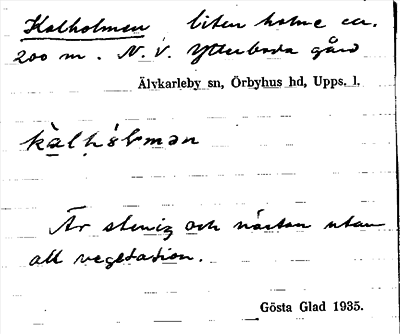 Kalholmen liten holme ca.
200 m. N. V. Ytterboda gård
Älvkarleby sn, Örbyhus hd, Upps. l.
Är stenig och nästan utan
all vegetation.
Gösta Glad 1935.